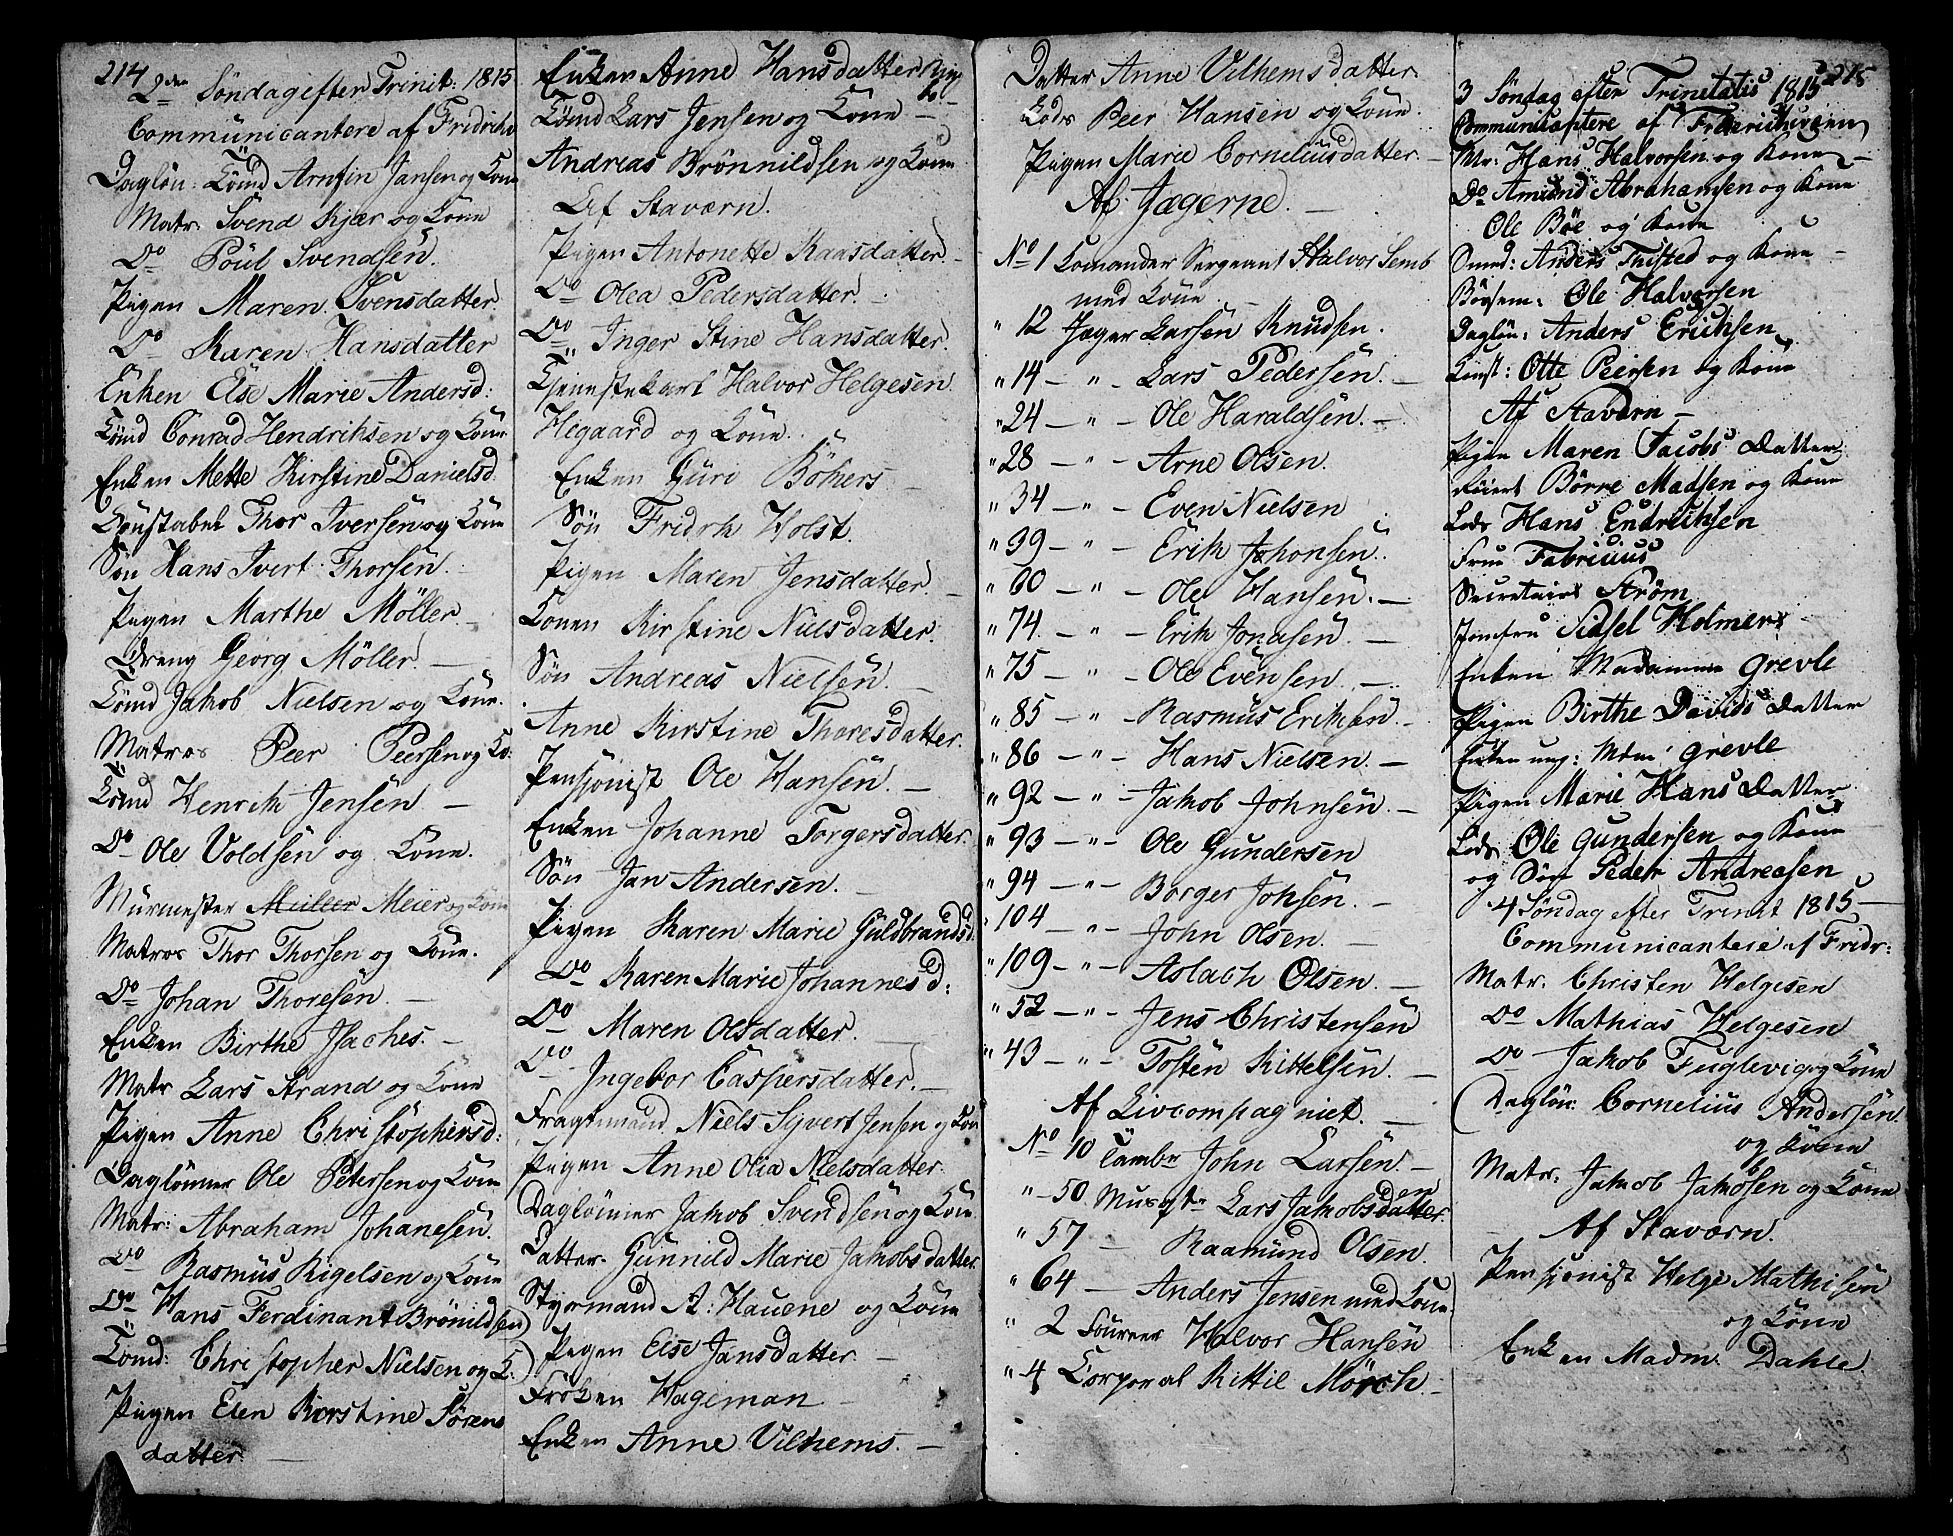 214
2den Söndag efter Trinit: 1815
Communicantere af Fridrichs
Daglön: Tömd Arnfin Jansen og Kone
Matr. Svend Kjær og Kone
Do Poul Svendsen
Pigen Maren Svensdatter
Do Karen Hansdatter
Enken Else Marie Andersd:
Tömd Conrad Hendrichsen og Kone
Enken Mette Kirstine Danielsd.
Constabel Thor Iversen og Kone
Sön Hans Ivert Thorsen
Pigen Marthe Möller
Dreng Georg Möller
Tömd Jakob Nielsen og Kone.
Matros Peer Peersen og Ko.
Tömd Henrik Jensen
Do Ole Voldsen og Kone.
Murmester Meier og Kone
Matros Thor Thorsen og Kone.
Do Johan Thoresen
Enken Birthe Isaches.
Matr Lars Strand og Kone
Pigen Anne Christophersd:
Daglönner Ole Petersen og Kone
Matr: Abraham Johanesen
Do Rasmus Rigelsen og Kone
Do Hans Ferdinant Brönildsen
Tömd: Christopher Nielsen og K.
Pigen Elen Kirstine Sörens
datter
Enken Anne Hansdatter
Tömd Lars Jensen og Kone
Andreas Brönnildsen og Kone
Af Staværn.
Pigen Antonette Raasdatter
Do Olea Pedersdatter.
Do Inger Stine Hansdatter.
Tjennestekarl Halvor Helgesen
Hegaard og Kone.
Enken Guri Böhers
Sön Fridrk Holst.
Pigen Maren Jensdatter.
Konen Kirstine Nielsdatter.
Sön Andreas Nielsen
Anne Kirstine Thoresdatter.
Pensjonist Ole Hansen.
Enken Johanne Torgersdatter.
Sön Jan Andersen.
Pigen Karen Marie Guldbrandsd.
Do Karen Marie Johannesd:
Do Maren Olsdatter.
Do Ingebor Caspersdatter.
Fragtmand Niels Sivert Jensen og Kone
Pigen Anne Olia Nielsdatter.
Daglönner Jakob Svendsen og Kone
Datter Gunnild Marie Jakobsdatter.
Styrmand A: Hauene og Kone
Pigen Else Jansdatter.
Fröken Hageman
Enken Anne Vilhems.
Datter Anne Vilhemsdatter.
Lods Peer Hansen og Kone.
Pigen Marie Corneliusdatter.
Af Jægerne.
No 1 Comander Sergeant Halvor Semb
med Kone
" 12 Jæger Larsen Knudsen.
" 14 — " — Lars Pedersen.
" 24 — " — Ole Haraldsen.
" 28 — " — Arne Olsen.
" 34 — " — Even Nielsen
" 39 — " — Erik Johonsen.
" 60 — " — Ole Hansen.
" 74 — " — Erik Jonasen.
" 75 — " — Ole Evensen
" 85 — " — Rasmus Eriksen
" 86 — " — Hans Nielsen.
" 92 — " — Jakob Johnsen
" 93 — " — Ole Gundersen
" 94 — " — Borger Johsen.
" 104 — " — John Olsen.
" 109 — " — Aslach Olsen.
" 52 — " — Jens Christensen
" 43 — " — Tosten Kittelsen.
Af Livcompagniet.
No 10 Tambr John Larsen.
" — 50 Musqt Lars Jakobsen
" 57 — Raamund Olsen
" 64 — Anders Jensen med Kone
" 2 Foureer Halvor Hansen
" 4 Corporal Kittil Mörch
215
3 Söndag efter Trinitatis 1815
Communicantere af Friderichsværn
Mr: Hans Halvorsen og Kone
Do Amund Abrahamsen og Kone
Ole Böe og Kone
Smed: Anders Fristed og Kone
Bösem: Ole Halvorsen
Daglön: Anders Erichsen
Const: Otte Peersen og Kone
Af Stavern
Pigen Maren Jacobs Datter
Börre Madsen og Kone
Lods Hans Endrichsen
Frue Fabritius
Secretairs Ström
Jomfru Sidsel Holmers
Enken Madamme Grevle
Pigen Birthe Davids Datter
Enken ung: Mdm: Grevle
Pigen Marie Hans Datter
Lods Ole Gundersen og Kone
og Sön Peder Andreasen
4 Söndag efter Trinit 1815
Communicantere af Fridr:
Matr. Christen Helgesen
Do Mathias Helgesen
Do Jakob Fuglevig og Kone
Daglön: Cornelius Andersen
og Kone
Matr. Jakob Jakobsen og Kone
Af Stavern.
Pensjonist Helge Mathisen
og Kone
Enken Madm. Dahle